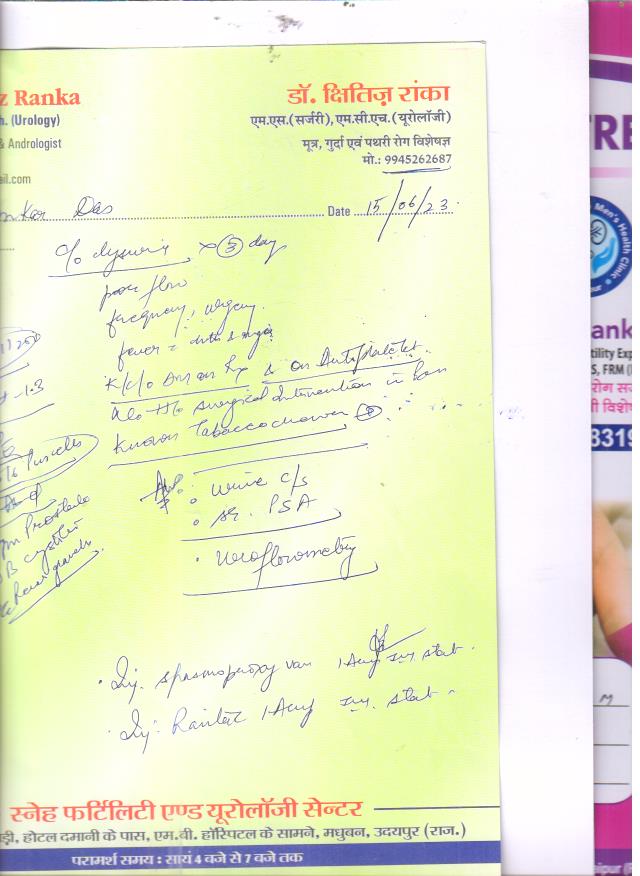 z Ranka
h. (Urology)
& Andrologist
ail.com
डॉ. क्षितिज़ रांका
एम.एस.(सर्जरी), एम.सी.एच.(यूरोलॉजी)
मूत्र, गुर्दा एवं पथरी रोग विशेषज्ञ
मो.: 9945262687
nkar Das Date 15/06/23
c/o dysuria × 3 day
poor flow
frequency, urgency
fever
K/c/o on & on Antiplatelet
Also H/o surgical Intervention in
Known Tabacco chewer
11250
-1.3
Puscells
Prostate
cystitis
Adv:
• urine c/s
• sr. PSA
• uroflowmetry
• Inj. spasmoproxyvan 1 Amp stat.
• Inj. Rantac 1 Amp stat
स्नेह फर्टिलिटी एण्ड यूरोलॉजी सेन्टर
ड़ी, होटल दमानी के पास, एम.बी. हॉस्पिटल के सामने, मधुबन, उदयपुर (राज.)
परामर्श समय : सायं 4 बजे से 7 बजे तक
TRE
Men's Health Clinic
ank
tility Exp
S, FRM (
रोग सर्
ी विशे
8319
M
aipur (R